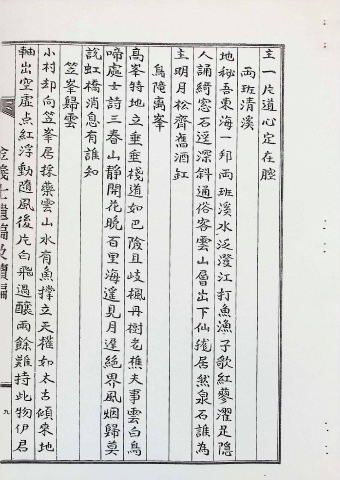 主一片道心定在腔
兩班淸溪
地秘吾東海一邦兩班溪水泛澄江打魚漁子歌紅蓼濯足隱
人誦綺窓石逕深斜通俗客雲山層出下仙 居然泉石誰爲
主明月松齊舊酒缸
烏 高峯
高峯特地立垂垂棧道如巴險且岐楓丹樹老樵夫事雲白鳥
啼處士詩三春山靜開花晚百里海遙見月遲絕界風烟歸莫
說虹橋消息有誰知
笠峯歸雲
小村却向笠峯居採藥雲山水有魚撑立天權如太古傾來地
軸出空虛点紅浮動隨風後片白飛過釀雨餘難持此物伊君
士遺稿 續編
九